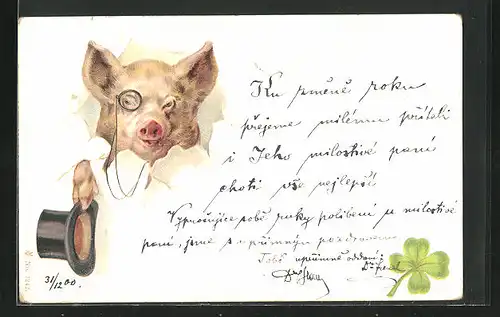 Ku změně roku
přejeme milému příteli
i Jeho milostivé paní
choti vše nejlepší.
Vyprošujíce sobě ruky políbení u milostivé
paní, jsme s upřímným pozdravem
Tobě upřímně oddaní
31/12 00.